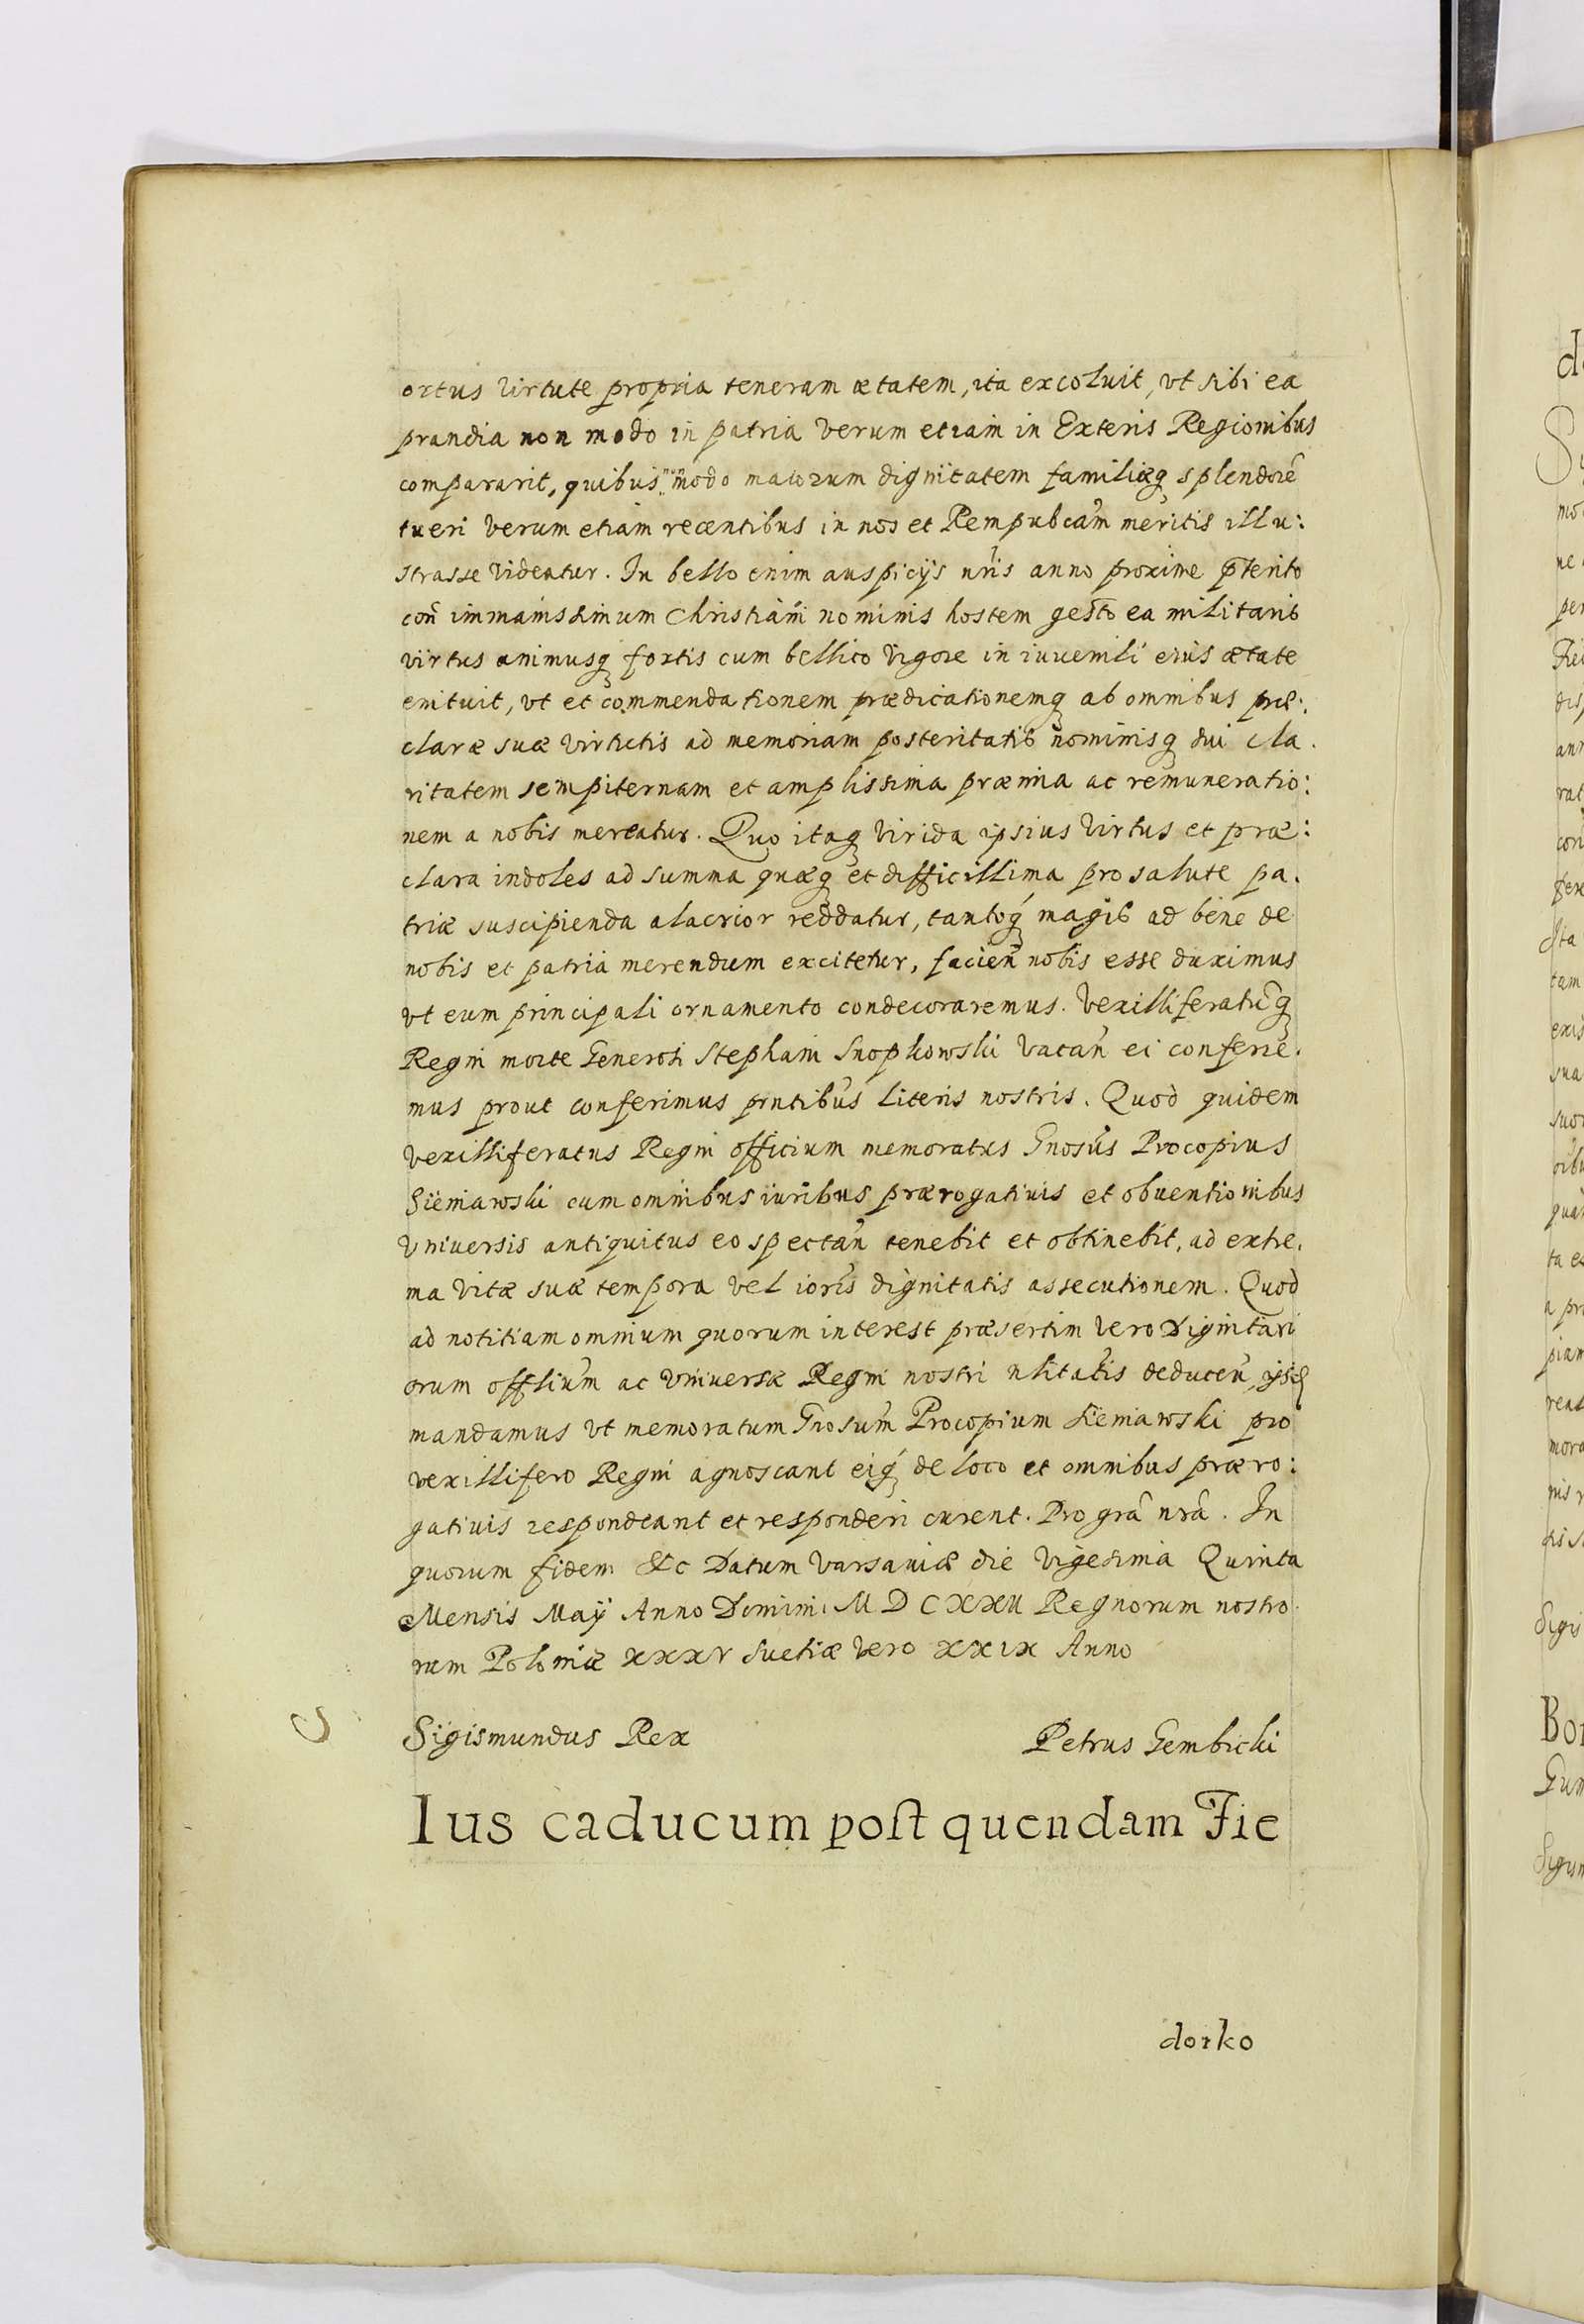 ortus virtute propria teneram ætatem, ita excoluit, vt sibi ea
prandia non modo in patria verum etiam in Exteris Regionibus
compararit, quibus non modo maiorum dignitatem familiæq splendorẽ
tueri verum etiam recentibus in nos et Rempubcam̃ meritis illu:
strasse videatur. In bello enim auspicijs nr̃is anno proxime p̃terito
coñ immanissimum Christiani nominis hostem gesto ea militaris
virtus animusq fortis cum bellico vigore in iuvenili eius ætate
enituit, vt et commendationem prædicationemq ab omnibus præ:
claræ suæ virtutis ad memoriam posteritatis nominisq sui cla.
ritatem sempiternam et amplissima præmia ac remuneratio:
nem a nobis mereatur. Quo itaq virida ipsius virtus et præ:
clara indoles ad summa quæq et difficillima pro salute pa.
triæ suscipienda alacrior reddatur, tantoq́ magis ad bene de
nobis et patria merendum excitetur, facień nobis esse duximus
vt eum principali ornamento condecoraremus. Vexilliferatũq
Regni morte Generosi Stephani Snopkowski vacań ei conferre.
mus prout conferimus pñtibus literis nostris. Quod quidem
vexilliferatus Regni officium memoratus Gnosus Procopius
Sieniawski cum omnibus iuribus prærogativis et obventionibus
vniversis antiquitus eo spectań tenebit et obtinebit, ad extre.
ma vitæ suæ tempora vel ioris dignitatis assecutionem. Quod
ad notitiam omnium quorum interest præsertim vero Dignitari
orum offlium̃ ac vniversæ Regni nostri nlitatis deduceń, ijsq
mandamus vt memoratum Gnosum̃ Procopium Sieniawski pro
vexillifero Regni agnoscant eiq́ de loco et omnibus præro:
gativis respondeant et responderi curent. Pro grã nrã. In
quorum fidem &c Datum Varsaviæ die Vigesima Quinta
Mensis Maÿ Anno Domini M D C XXII Regnorum nostro.
rum Poloniæ XXXV Suetiæ vero XXIX Anno
Sigismundus Rex Petrus Gembicki
Ius caducum post quendam Fie
dorko